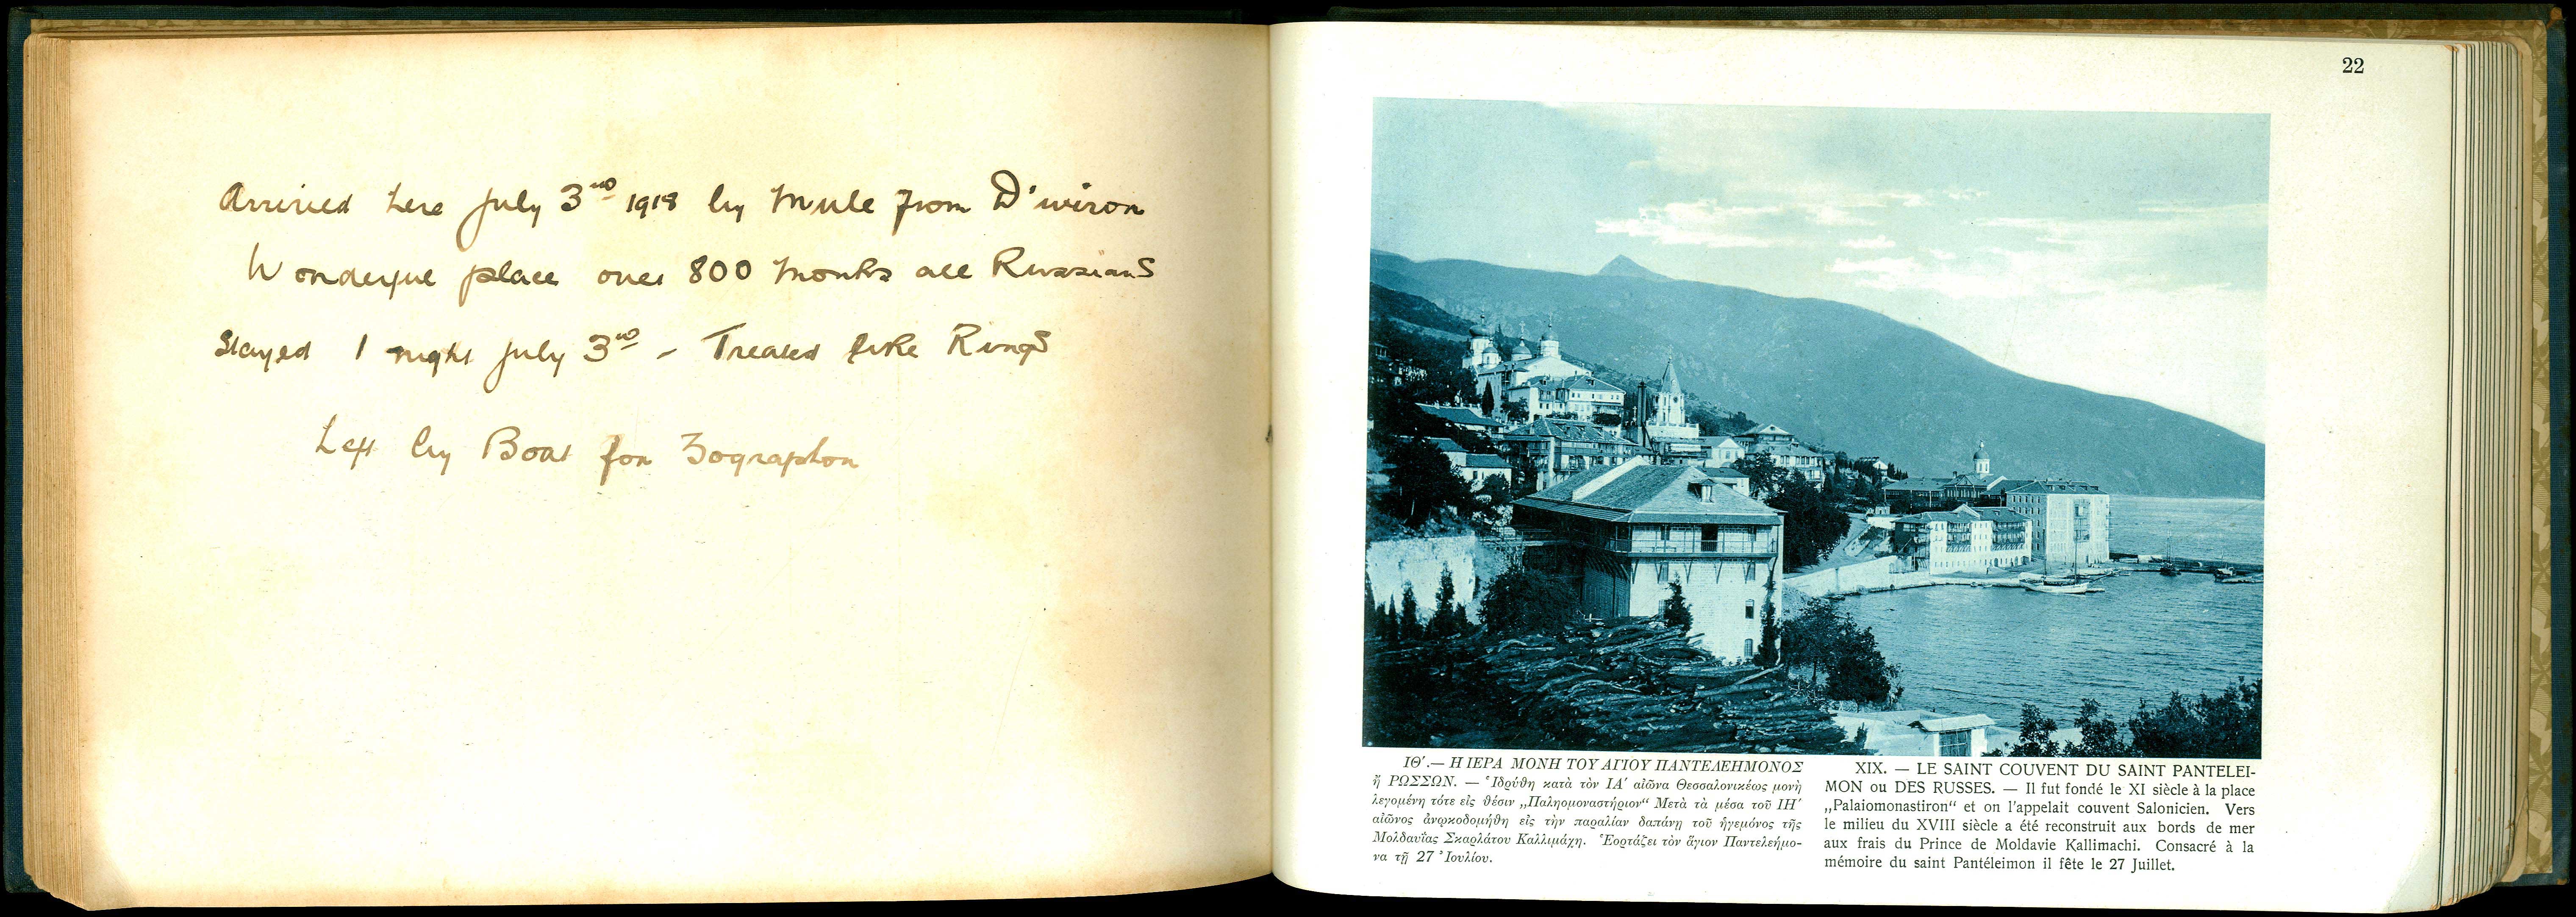 Arrived here July 3nd 1918 by Mule from D'iviron
Wonderful place over 800 Monks all Russians
Stayed 1 night July 3nd - Treated like Kings
Left by Boat for Zographon
22
ΙΘ′.— Η ΙΕΡΑ ΜΟΝΗ ΤΟΥ ΑΓΙΟΥ ΠΑΝΤΕΛΕΗΜΟΝΟΣ
ἢ ΡΩΣΣΩΝ. — Ἱδρύθη κατὰ τὸν ΙΑ′ αἰῶνα Θεσσαλονικέως μονὴ
λεγομένη τότε εἰς θέσιν „Παληομοναστήριον“ Μετὰ τὰ μέσα τοῦ ΙΗ′
αἰῶνος ἀνῳκοδομήθη εἰς τὴν παραλίαν δαπάνῃ τοῦ ἡγεμόνος τῆς
Μολδαυΐας Σκαρλάτου Καλλιμάχη. Ἑορτάζει τὸν ἅγιον Παντελεήμο-
να τῇ 27 Ἰουλίου.
XIX. — LE SAINT COUVENT DU SAINT PANTELEI-
MON ou DES RUSSES. — Il fut fondé le XI siècle à la place
„Palaiomonastiron“ et on l'appelait couvent Salonicien. Vers
le milieu du XVIII siècle a été reconstruit aux bords de mer
aux frais du Prince de Moldavie Kallimachi. Consacré à la
mémoire du saint Pantéleimon il fête le 27 Juillet.